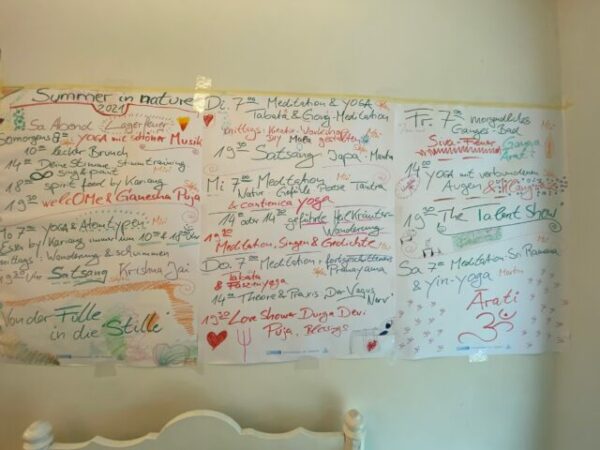 Summer in nature
2021
Sa Abend: Lagerfeuer
Sonmorgens 8 YOGA mit schöner Musik
10 leckér Brunch
14 Deine Stimme, Stimmtraining
sing & paint
18 spirit food by Karang
19 30 welcOMe & Ganesha Puja
Mo 7 YOGA & Atemtypen
Essen by Karang immer um 10 & 18 Uhr
mittags: Wanderung & schwimmen
Uhr Satsang Krishna Jai
Von der Fülle
in die Stille
Di. 7 Meditation & YOGA
Tabata & Gong-Meditation
mittags: Kreativ-Wanderung
Mala gestalten
19 30 Satsang Japa-Mantra
Mi 7 Meditation
Natur Gefühle Poesie Tantra
& contienica yoga
14 oder 14 30 geführte Heil Kräuter-
Wanderung
19 30
Meditation, Singen & Gedichte
Do. 7 Meditation + fortgeschrittenes
Pranayama
Tabata
& Faszienyoga
14 Theorie & Praxis Der Vagus
Nerv
19 30 Love Shower Durga Devi
Puja, Blessings
Fr. 7 morgendliches
Ganges-Bad
Siva-Feuer Ganga
Arati
14 YOGA mit verbundenen
Augen & Klang
19 30 The Talent Show
Sa 7 Meditation Sri Ramana
& Yin-yoga Martin
Arati
ॐ